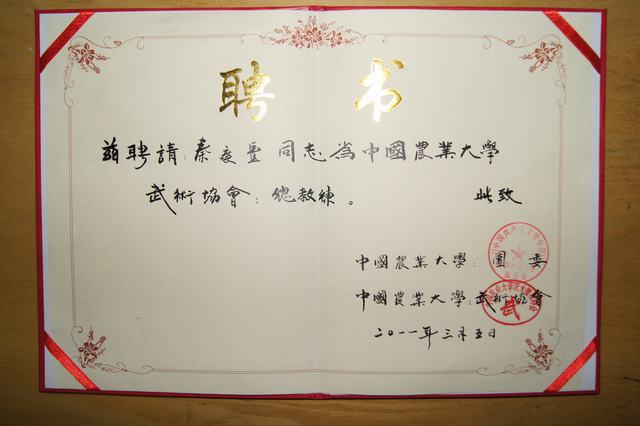 聘书
兹聘請：秦慶豐同志為中國農業大學
武術協會：總教練。 此致
中國農業大學：團委
中國農業大學：武術協會
二〇一一年三月五日
武